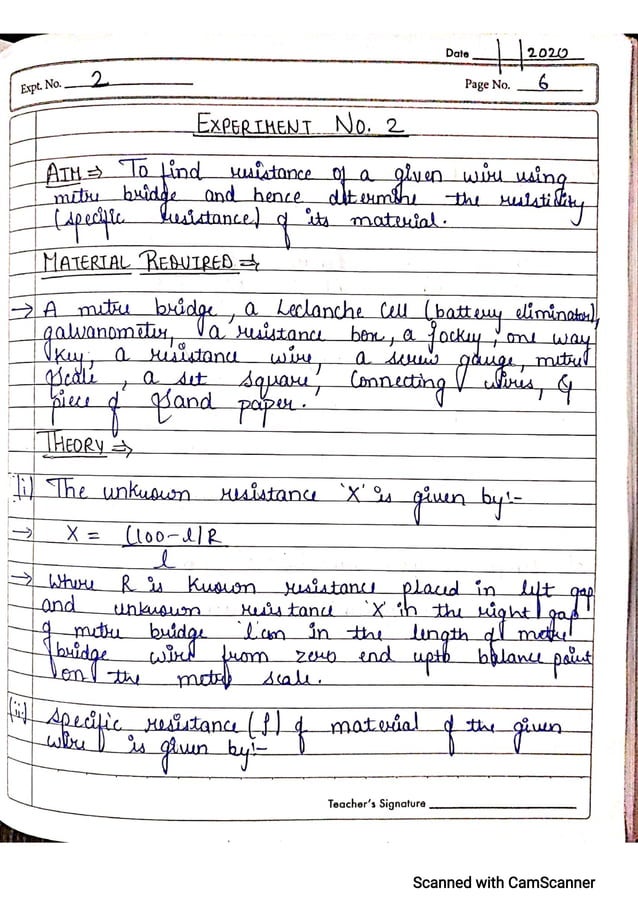 Date / / 2020
Expt. No. 2
Page No. 6
EXPERIMENT NO. 2
AIM ⇒ To find resistance of a given wire using
metre bridge and hence determine the resistivity
(specific resistance) of its material.
MATERIAL REQUIRED ⇒
→ A metre bridge, a Leclanche Cell (battery eliminator),
galvanometer, a resistance box, a Jockey, one way
Key, a resistance wire, a screw gauge, metre
Scale, a set square, Connecting wires, &
piece of sand paper.
THEORY ⇒
(i) The unknown resistance 'X' is given by:-
→ X = (100-l)R
l
→ Where R is known resistance placed in left gap
and unknown resistance 'X' in the right gap
of metre bridge 'l'cm in the length of metre
bridge wire from zero end upto balance point
on the metre scale.
(ii) Specific resistance (ρ) of material of the given
wire is given by:-
Teacher's Signature
Scanned with CamScanner